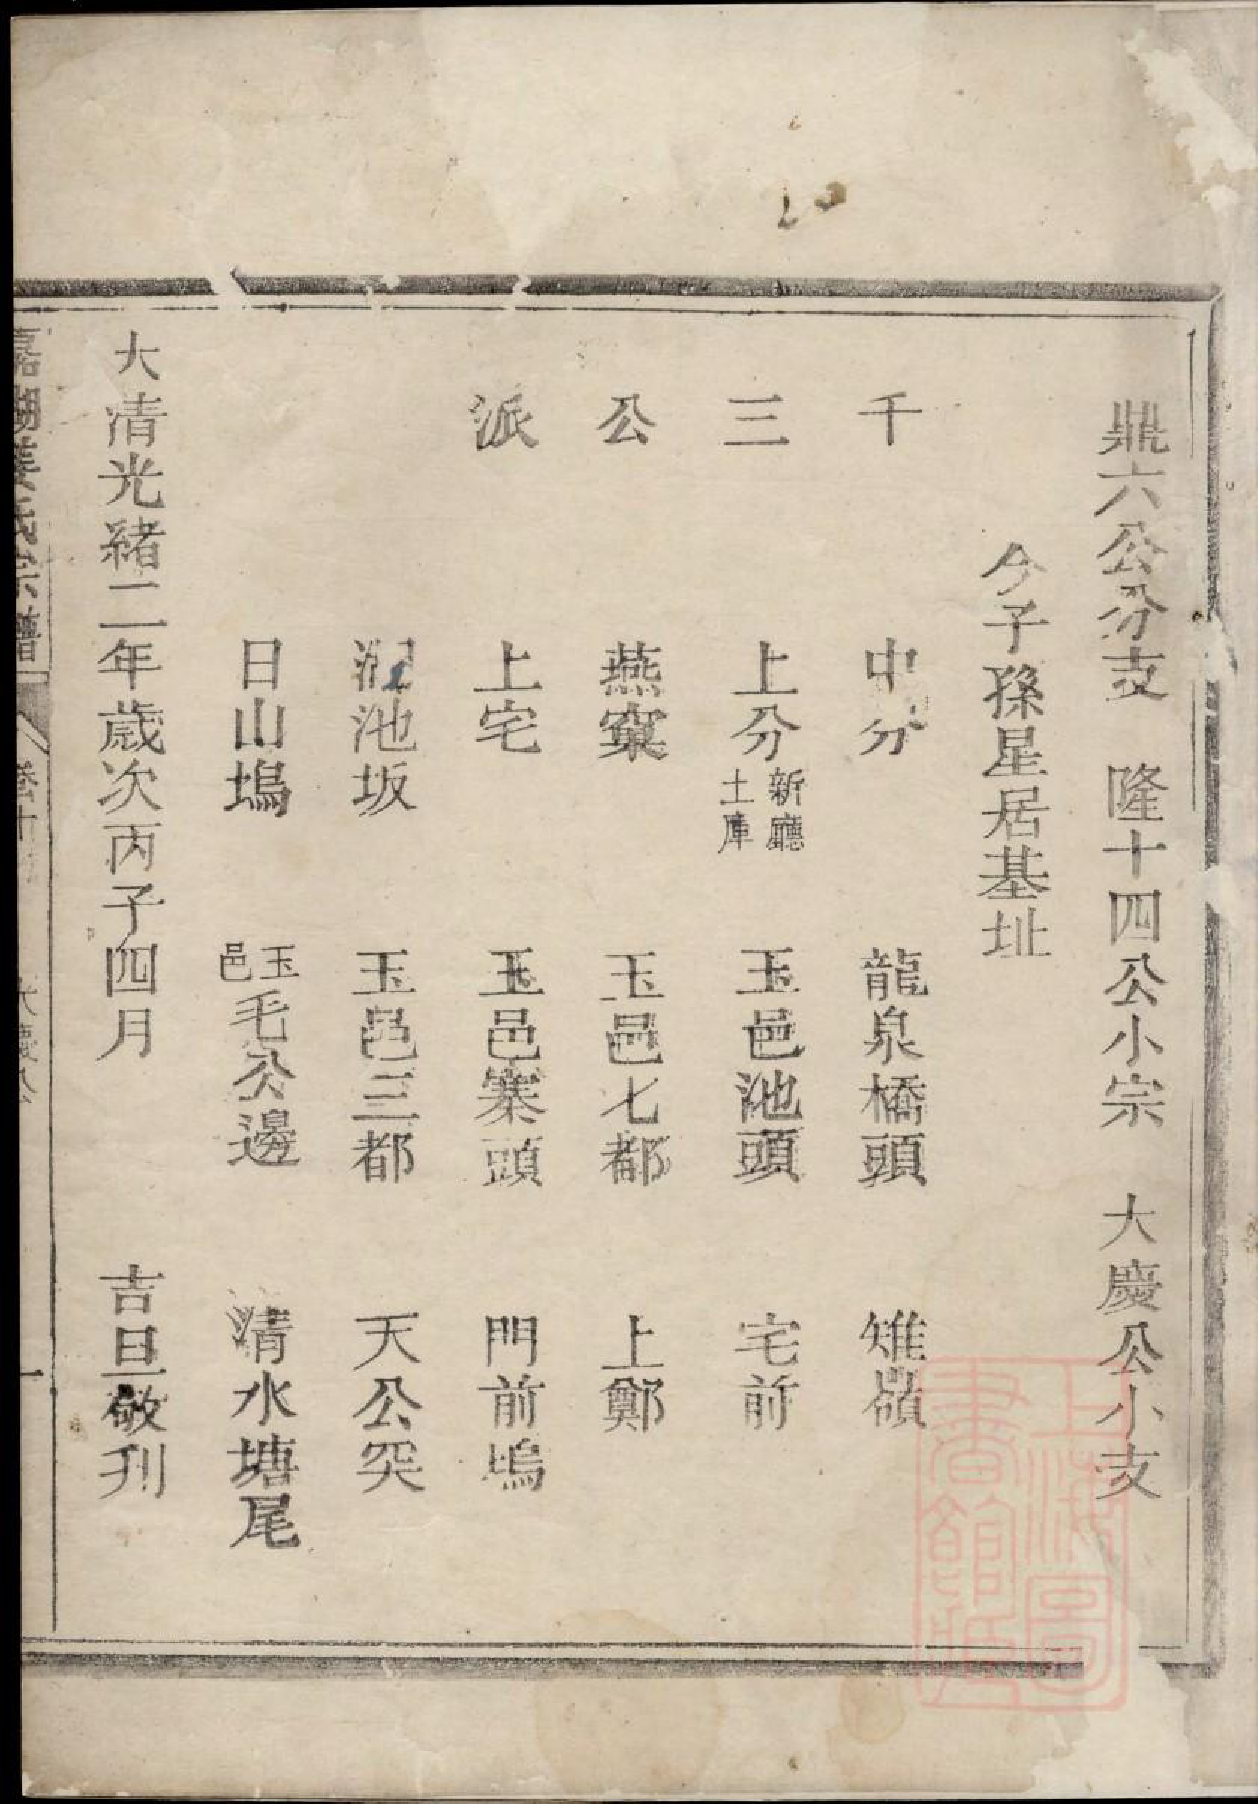 鼎六公分支 隆十四公小宗 大慶公小支
今子孫星居基址
千 中分 龍泉橋頭 雉嶺
三 上分 新廳 土庫 玉邑池頭 宅前
公 燕窠 玉邑七都 上鄭
派 上宅 玉邑寨頭 門前塢
池坂 玉邑三都 天公突
日山塢 玉邑毛公邊 清水塘尾
大清光緒二年歲次丙子四月 吉旦敬刋
嘉湖姜氏宗譜 卷十 大慶公 一
上海圖書館藏